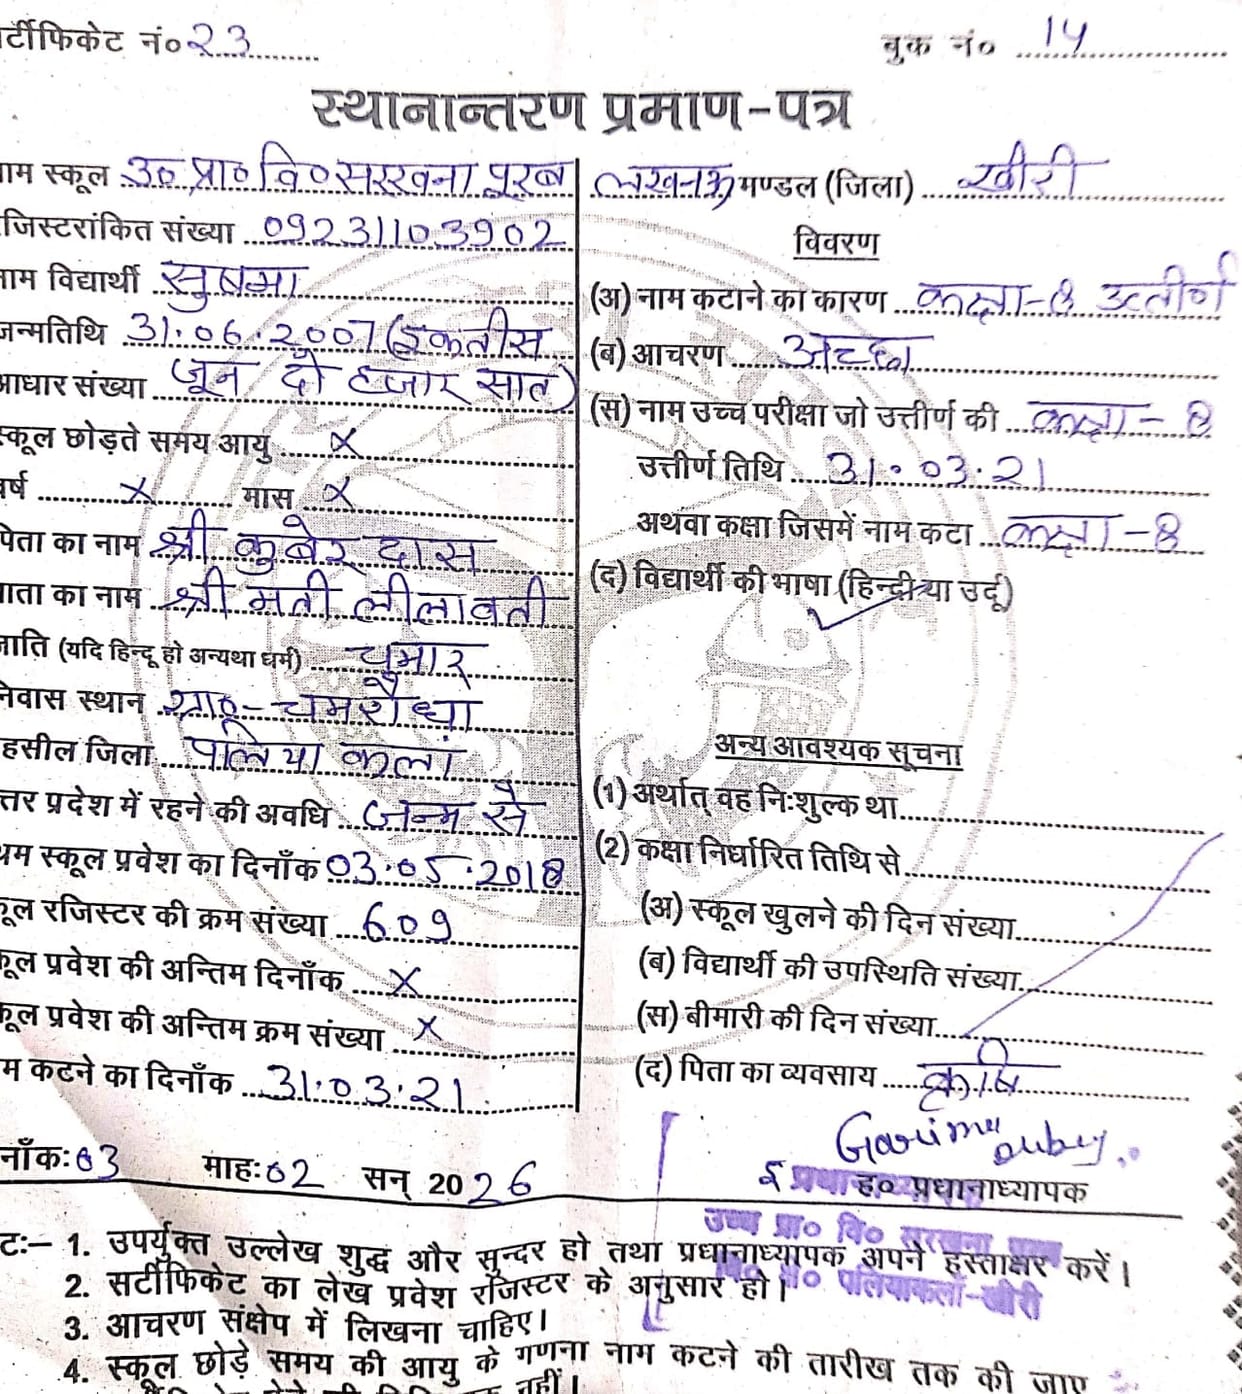 र्टीफिकेट नं० 23
बुक नं० 14
स्थानान्तरण प्रमाण-पत्र
ाम स्कूल उ० प्रा० वि० सरखना पूरब
जिस्टरांकित संख्या 09231103902
नाम विद्यार्थी सुषमा
जन्मतिथि 31.06.2007 (इकतीस
आधार संख्या जून दो हजार सात)
स्कूल छोड़ते समय आयु x
वर्ष x मास x
पिता का नाम श्री कुबेर दास
माता का नाम श्री मती लीलावती
जाति (यदि हिन्दू हो अन्यथा धर्म) चमार
निवास स्थान ग्रा०- चमरौधा
हसील जिला पलिया कलां
त्तर प्रदेश में रहने की अवधि जन्म से
थम स्कूल प्रवेश का दिनाँक 03.05.2018
कूल रजिस्टर की क्रम संख्या 609
कूल प्रवेश की अन्तिम दिनाँक x
कूल प्रवेश की अन्तिम क्रम संख्या x
म कटने का दिनाँक 31.03.21
लखनऊ मण्डल (जिला) खीरी
विवरण
(अ) नाम कटाने का कारण कक्षा-8 उत्तीर्ण
(ब) आचरण अच्छा
(स) नाम उच्च परीक्षा जो उत्तीर्ण की कक्षा-8
उत्तीर्ण तिथि 31.03.21
अथवा कक्षा जिसमें नाम कटा कक्षा-8
(द) विद्यार्थी की भाषा (हिन्दी या उर्दू)
अन्य आवश्यक सूचना
(1) अर्थात् वह निःशुल्क था
(2) कक्षा निर्धारित तिथि से
(अ) स्कूल खुलने की दिन संख्या
(ब) विद्यार्थी की उपस्थिति संख्या
(स) बीमारी की दिन संख्या
(द) पिता का व्यवसाय कृषि
Garima Dubey
नाँकः 03 माहः 02 सन् 2026
ह० प्रधानाध्यापक
उच्च प्रा० वि० सरखना पूरब
पलियाकलां-खीरी
टः- 1. उपर्युक्त उल्लेख शुद्ध और सुन्दर हो तथा प्रधानाध्यापक अपने हस्ताक्षर करें।
2. सर्टीफिकेट का लेख प्रवेश रजिस्टर के अनुसार हो।
3. आचरण संक्षेप में लिखना चाहिए।
4. स्कूल छोड़े समय की आयु के गणना नाम कटने की तारीख तक की जाए
नहीं।